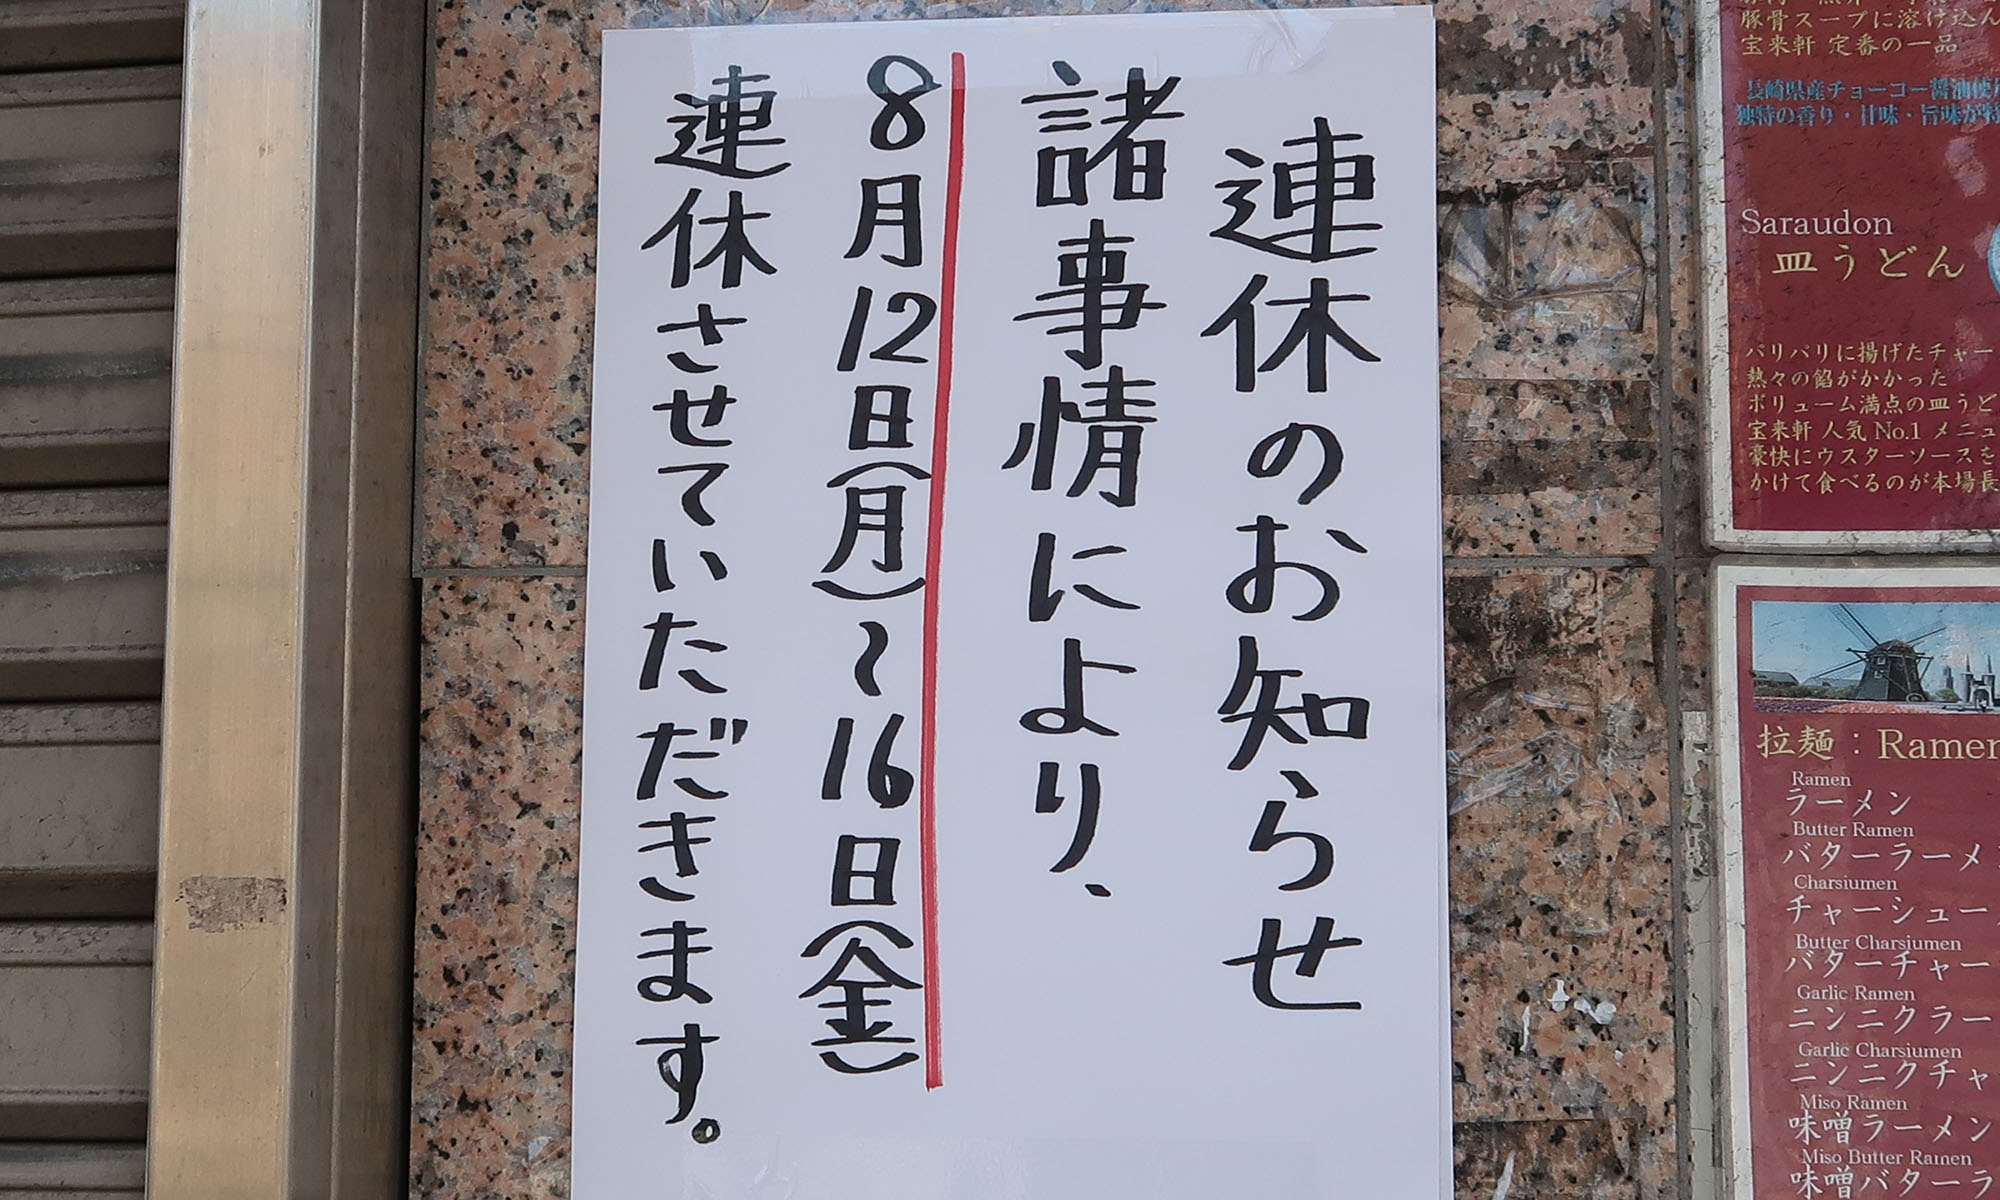 連休のお知らせ
諸事情により、
8月12日(月)〜16日(金)
連休させていただきます。
豚骨スープに溶け込ん
宝来軒 定番の一品
長崎県産チョーコー醤油使
独特の香り・甘味・旨味が特
Saraudon
皿うどん
パリパリに揚げたチャー
熱々の餡がかかった
ボリューム満点の皿うど
宝来軒 人気 No.1 メニュ
豪快にウスターソースを
かけて食べるのが本場長
拉麺：Ramen
Ramen
ラーメン
Butter Ramen
バターラーメ
Charsiumen
チャーシュー
Butter Charsiumen
バターチャー
Garlic Ramen
ニンニクラー
Garlic Charsiumen
ニンニクチャ
Miso Ramen
味噌ラーメン
Miso Butter Ramen
味噌バターラ